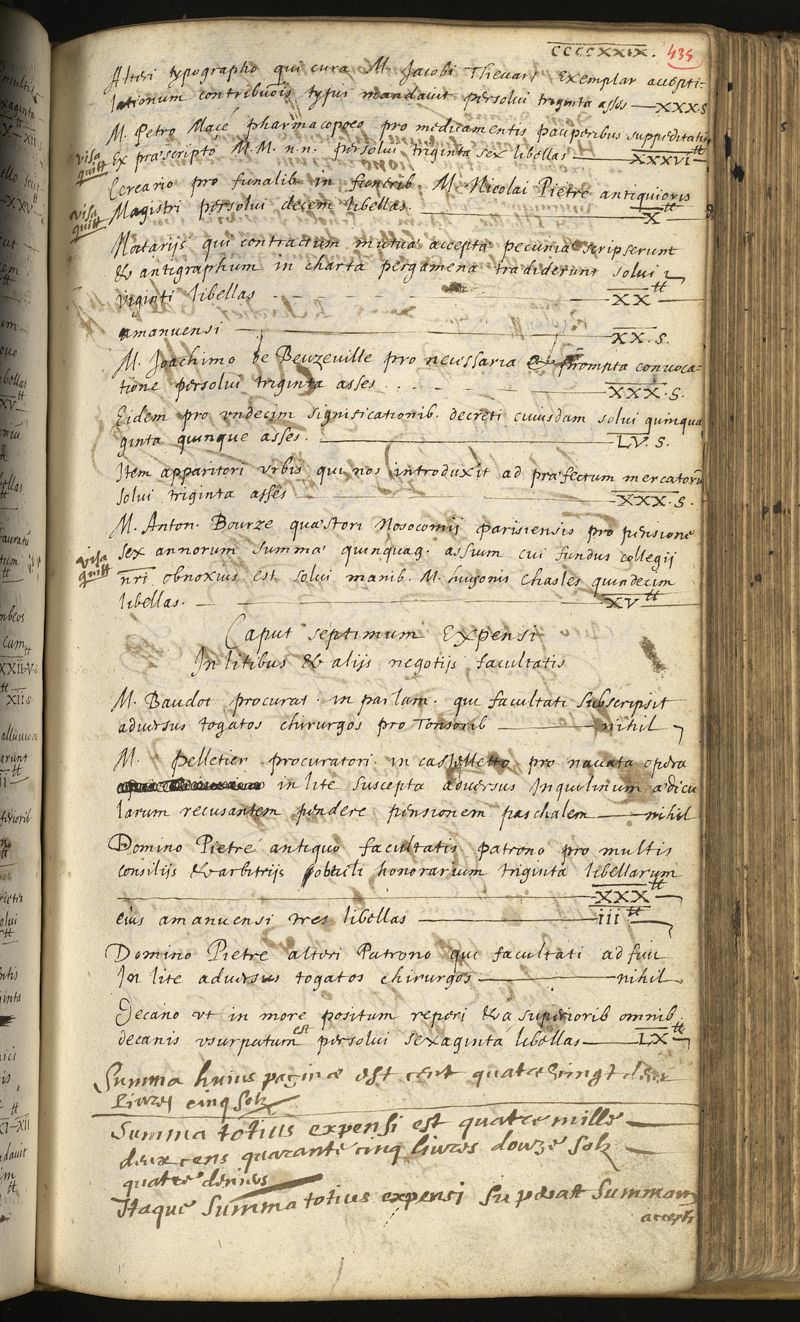 CCCCXXIX. 435
Alteri typographo qui cura M. Jacobi Thevart Exemplar accepti-
lationum contribuōis typus mandavit persolui triginta asses XXX.S
M. Petro Mace pharmacopoeo pro medicamentis pauperibus suppeditatis
visa quitt ex præscripto M.M. n.n. persolui triginta sex libellas XXXVI tt
Cereario pro funalib. in funerib. M. Nicolai Pietre antiquioris
visa quitt Magistri persolui decem libellas. X tt
Notarijs qui contractum mutua accepta pecunia scripserunt
& antigraphum in charta pergamena tradiderunt solui
viginti libellas XX tt
amanuensi XX.s.
M. Joachimo de Beuzeville pro necessaria & prompta convoca=
tione persolui triginta asses XXX.s.
Eidem pro vndecim significationib. decreti cuiusdam solui quinqua
ginta quinque asses. LV.s.
Item apparitori vrbis qui nos introduxit ad præfectum mercatorū
solui triginta asses XXX.s.
M. Anton. Bourze quæstori Nosocomij parisiensis pro pensione
visa quitt sex annorum summa quinquag. assium cui fundus collegij
nr̄i obnoxius est solui manib. M. hugonis Chasles quindecim
libellas. XV tt
Caput septimum Expensi
In litibus & alijs negotijs facultatis
M. Baudot procurat. in parlam. qui facultati subscripsit
adversus togatos chirurgos pro Tonsorib nihil
M. Pelletier procuratori in castelletto pro navata opera
in lite suscepta adversus Inquilinum ædicu
larum recusantem pendere pensionem paschalem nihil
Domino Pietre antiquo facultatis patrono pro multis
consilijs & arbitrijs obtuli honorarium triginta libellarum
XXX tt
eius amanuensi tres libellas iii tt
Domino Pietre alteri Patrono qui facultati adfuit
In lite adversus togatos chirurgos nihil
Decano vt in more positum reperi & a superiorib omnib.
decanis vsurpatum est persolui sexaginta libellas LX tt
Summa huius paginæ est cent quatre vingt deux
Livres cinq solz
Summa totius expensi est quatre mille
deux cens quarante cinq livres douze solz
quatre deniers
Itaque summa totius expensi superat summam
accepti